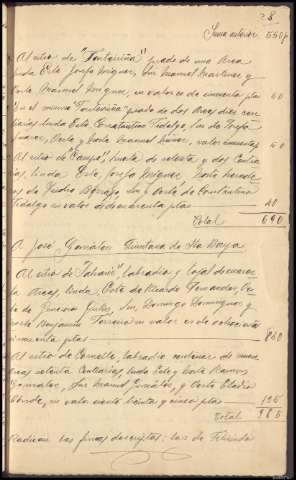 28
Suma anterior 550
Al sitio de "Fontaiviña" prado de una area
linda Este Josefa Miguez, Sur Manuel Martinez y
Norte Manuel Miguez, en valor es de cincuenta ptas 50
En el mismo Fontaiviña prado de dos areas diez cen
tiarias linda Este Constantino Fidalgo, Sur de Josefa
Suarez, Oeste y Norte Manuel valor cincuenta 50
Al sitio de "Campo", huerta de setenta y dos Centia
rias, linda Este, Josefa Miguez, Norte herede
ros de Pedro Sur y Oeste de Constantino
Fidalgo en valor es de cuarenta ptas 40
Total 690
A José González Quintana de Sta Baya
Al sitio de labradio y tojal de nueve
areas, linda, Oeste de Ricardo Fernandez, Es
te de Sur Domingo Dominguez y
Norte Benjamin en valor es de ochocientas
cincuenta ptas 850
Al sitio de Cornello, labradio centenar de
areas setenta Centiarias, linda Este y Norte Ramon
González, Sur Manuel González, y Oeste Eladio
Conde, en valor ciento veinte y cinco ptas 125
Total 965
Radican las fincas descriptas: las de